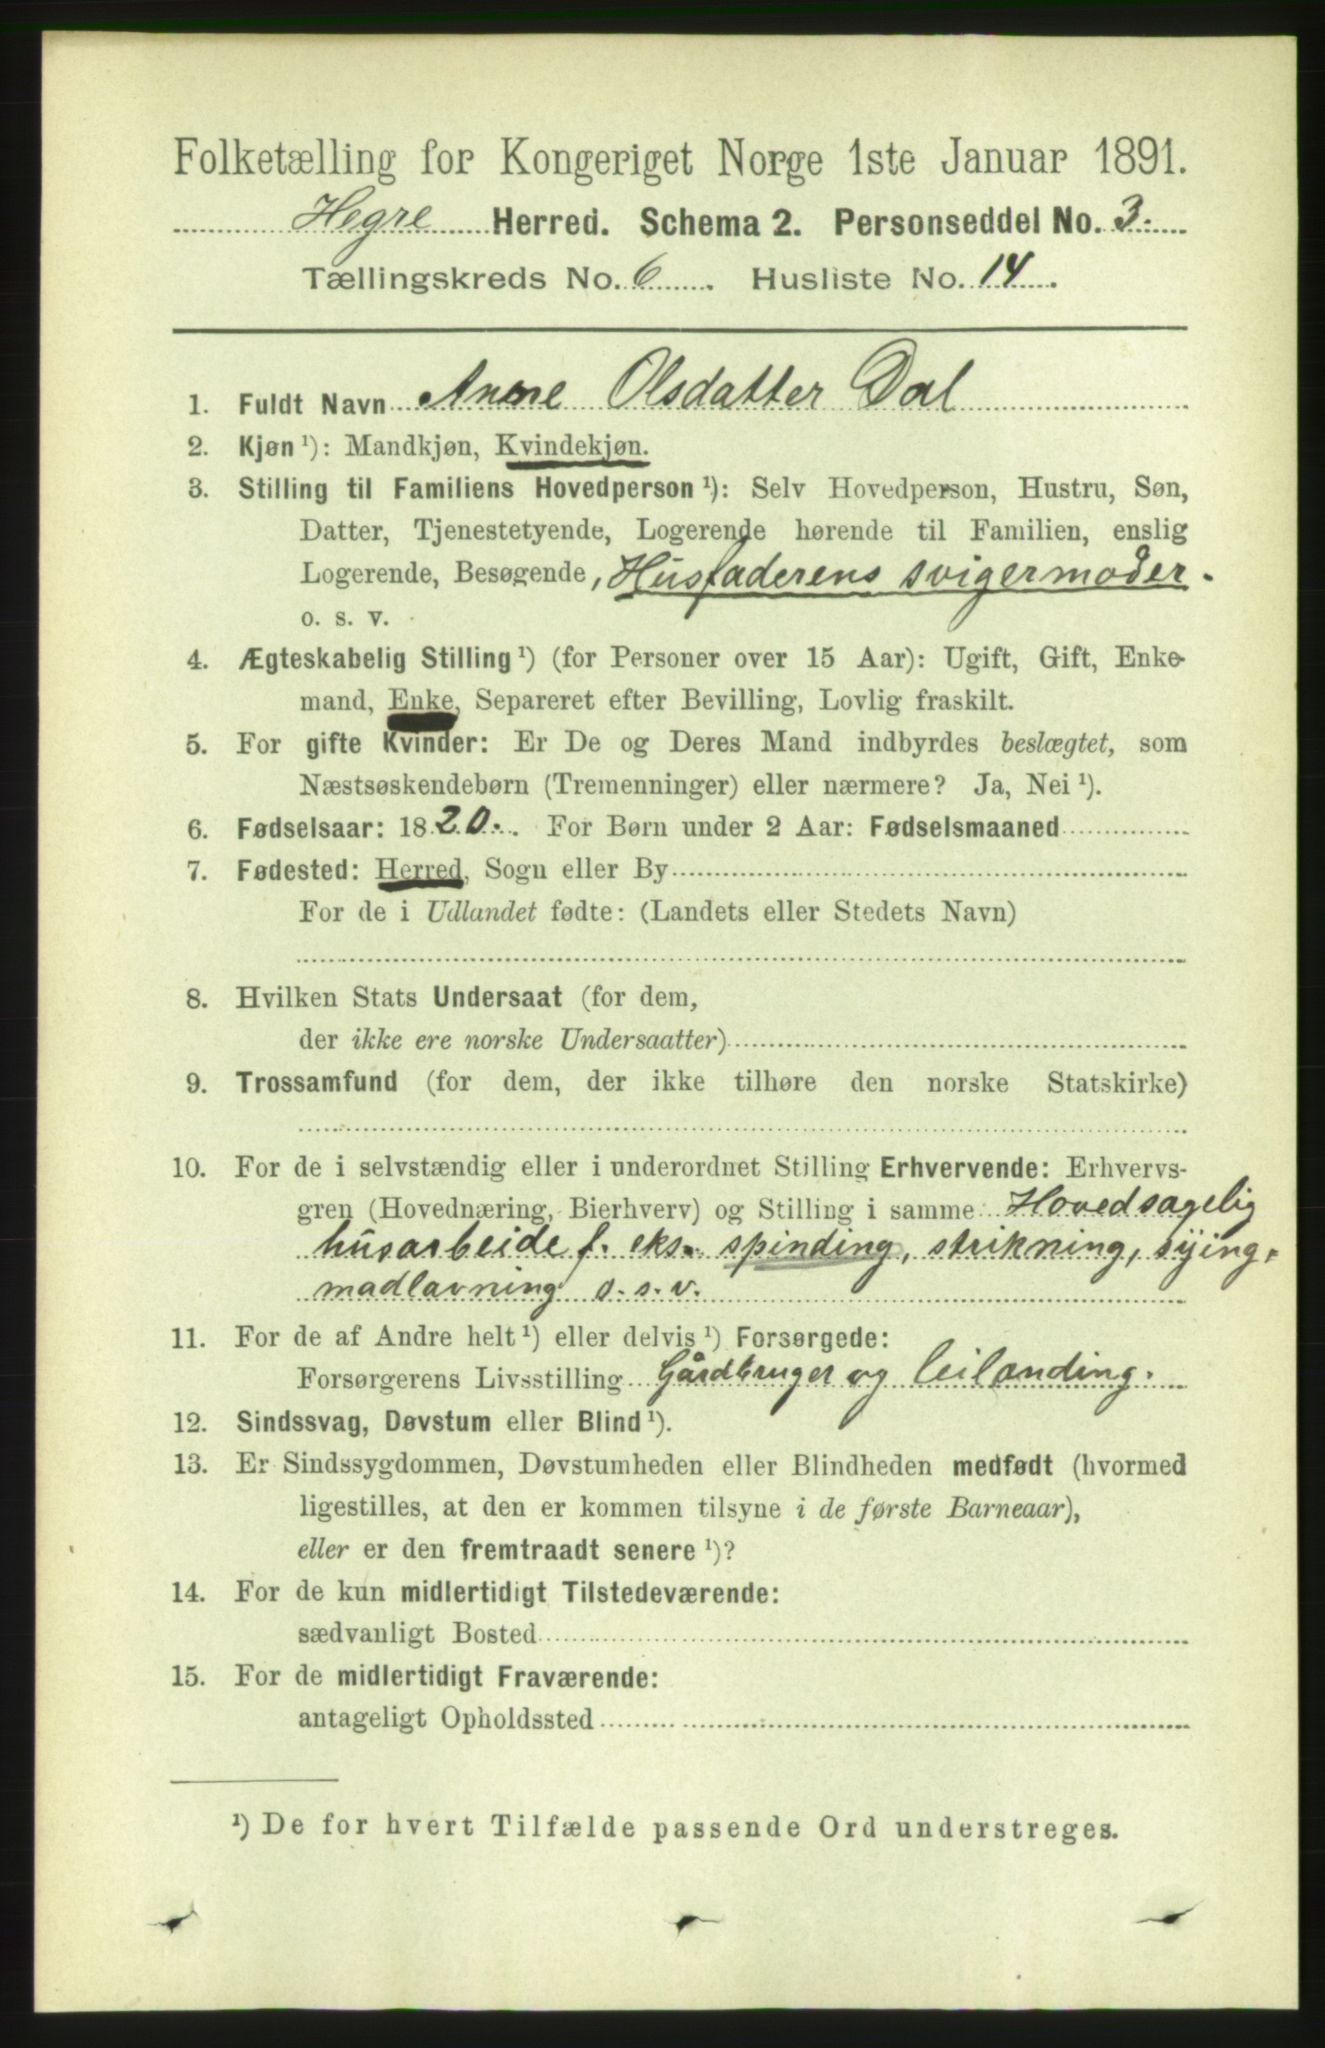 Folketælling for Kongeriget Norge 1ste Januar 1891.
Hegre Herred. Schema 2. Personseddel No. 3.
Tællingskreds No. 6. Husliste No. 14.
1. Fuldt Navn Anne Olsdatter Dal
2. Kjøn¹): Mandkjøn, Kvindekjøn.
3. Stilling til Familiens Hovedperson¹): Selv Hovedperson, Hustru, Søn,
Datter, Tjenestetyende, Logerende hørende til Familien, enslig
Logerende, Besøgende, Husfaderens svigermoder.
o. s. v.
4. Ægteskabelig Stilling¹) (for Personer over 15 Aar): Ugift, Gift, Enke-
mand, Enke, Separeret efter Bevilling, Lovlig fraskilt.
5. For gifte Kvinder: Er De og Deres Mand indbyrdes beslægtet, som
Næstsøskendebørn (Tremenninger) eller nærmere? Ja, Nei¹).
6. Fødselsaar: 1820. For Børn under 2 Aar: Fødselsmaaned
7. Fødested: Herred, Sogn eller By
For de i Udlandet fødte: (Landets eller Stedets Navn)
8. Hvilken Stats Undersaat (for dem,
der ikke ere norske Undersaatter)
9. Trossamfund (for dem, der ikke tilhøre den norske Statskirke)
10. For de i selvstændig eller i underordnet Stilling Erhvervende: Erhvervs-
gren (Hovednæring, Bierhverv) og Stilling i samme Hovedsagelig
husarbeide f. eks. spinding, strikning, sying,
madlavning o. s. v.
11. For de af Andre helt¹) eller delvis¹) Forsørgede:
Forsørgerens Livsstilling Gårdbruger og leilænding.
12. Sindssvag, Døvstum eller Blind¹).
13. Er Sindssygdommen, Døvstumheden eller Blindheden medfødt (hvormed
ligestilles, at den er kommen tilsyne i de første Barneaar),
eller er den fremtraadt senere¹)?
14. For de kun midlertidigt Tilstedeværende:
sædvanligt Bosted
15. For de midlertidigt Fraværende:
antageligt Opholdssted
¹) De for hvert Tilfælde passende Ord understreges.